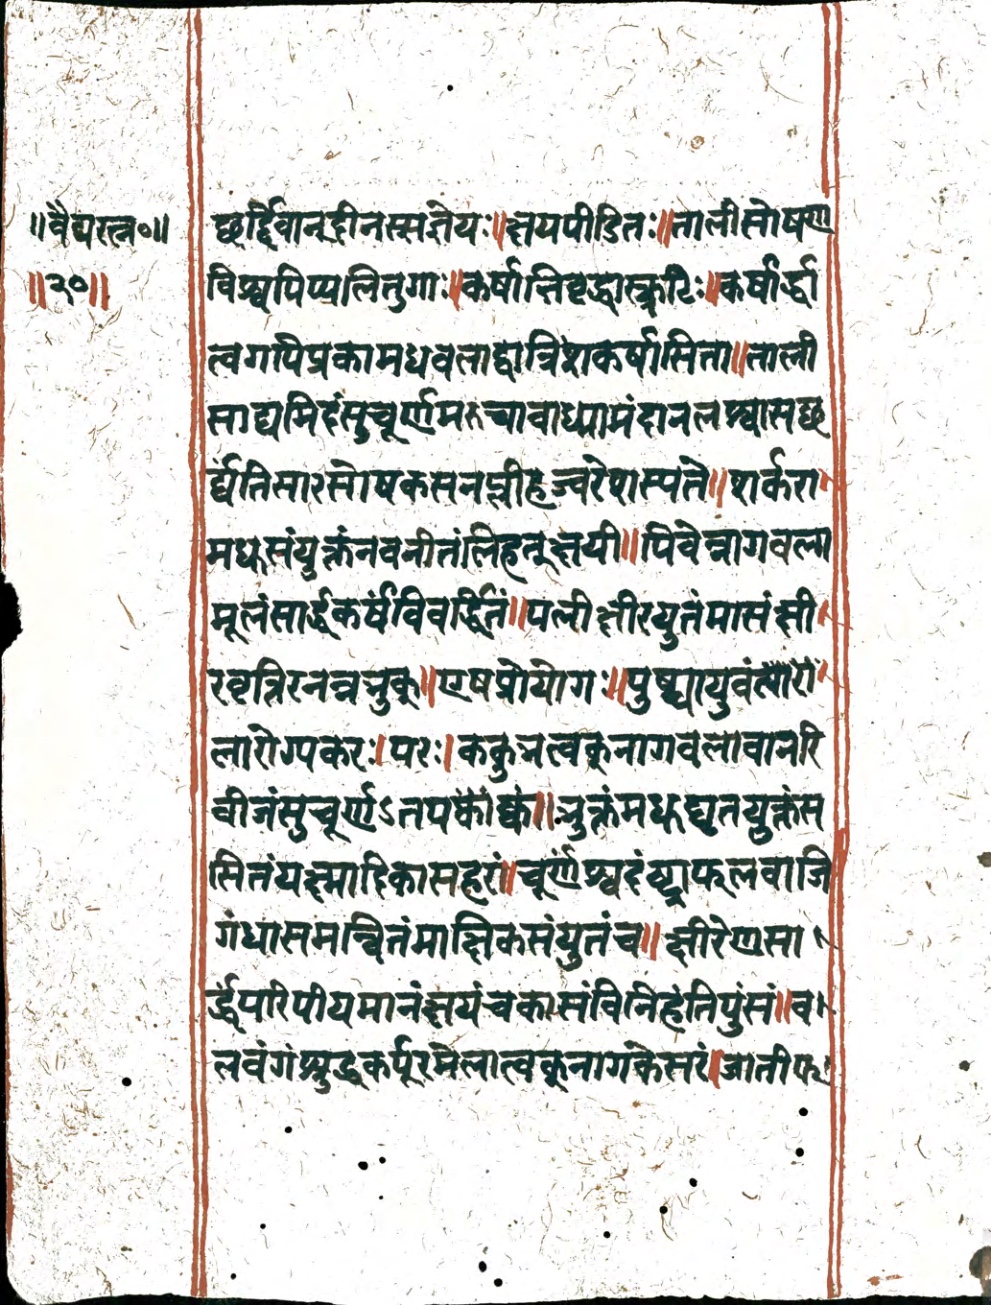 ॥वैद्यरत्न०॥
॥२०॥
छर्द्दिवान्दीनस्सज्ञेयः॥क्षयपीडितः॥तालीसोषण
विश्वपिप्पलितुगाः॥कर्षाभिवृद्धास्त्रुटिः॥कर्षार्द्धा
त्वगपिप्रकामधवलाद्वात्रिंशकर्षासिता॥ताली
साद्यमिदंसुचूर्णमरुचावाध्मामंदानलश्वासछ
र्द्यतिसारसोषकसनप्लीहज्वरेशस्पते॥शर्करा
मधुसंयुक्तंनवनीतंलिहन्क्षयी॥पिवेन्नागवला
मूलंसार्द्धकर्षविवर्द्धितं॥पलीक्षीरयुतंमासंक्षी
रवृत्तिरनन्नभुक्॥एषप्रोयोगः॥पुष्ट्यायुर्व
लारोग्यकरः।परः।ककुभत्वक्नागवलावानरि
वीजंसुचूर्णऽतपक्कं॥भुक्तंमधुघृतयुक्तंस
सितंयक्ष्मादिकासहरं॥चूर्णंश्वदंष्ट्राफलवाजि
गंधासमन्वितंमाक्षिकसंयुतंच॥क्षीरेणसा
र्द्धंपरिपीयमानंक्षयंचकासंविनिहंतिपुंसं॥व
लवंगंशुद्धकर्पूरमेलात्वक्नागकेसरं।जातीफ